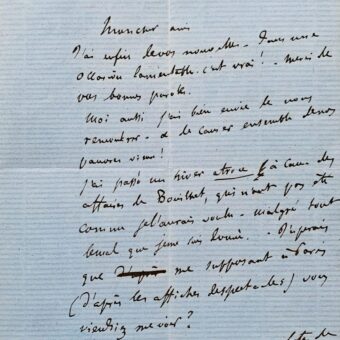 Mon cher ami
J'ai enfin de vos nouvelles. Dans une
occasion lamentable, c'est vrai! - merci de
vos bonnes paroles.
Moi aussi j'ai bien envie de vous
- & de causer ensemble de nos
pauvres vieux!
J'ai passé un hiver atroce à cause des
affaires de Bouilhet, qui n'ont pas été
comme je l'aurais voulu - malgré tout
le mal que je me suis donné. - J'espérais
que me supposant à Paris
(d'après les affiches de spectacles) vous
viendriez me voir?